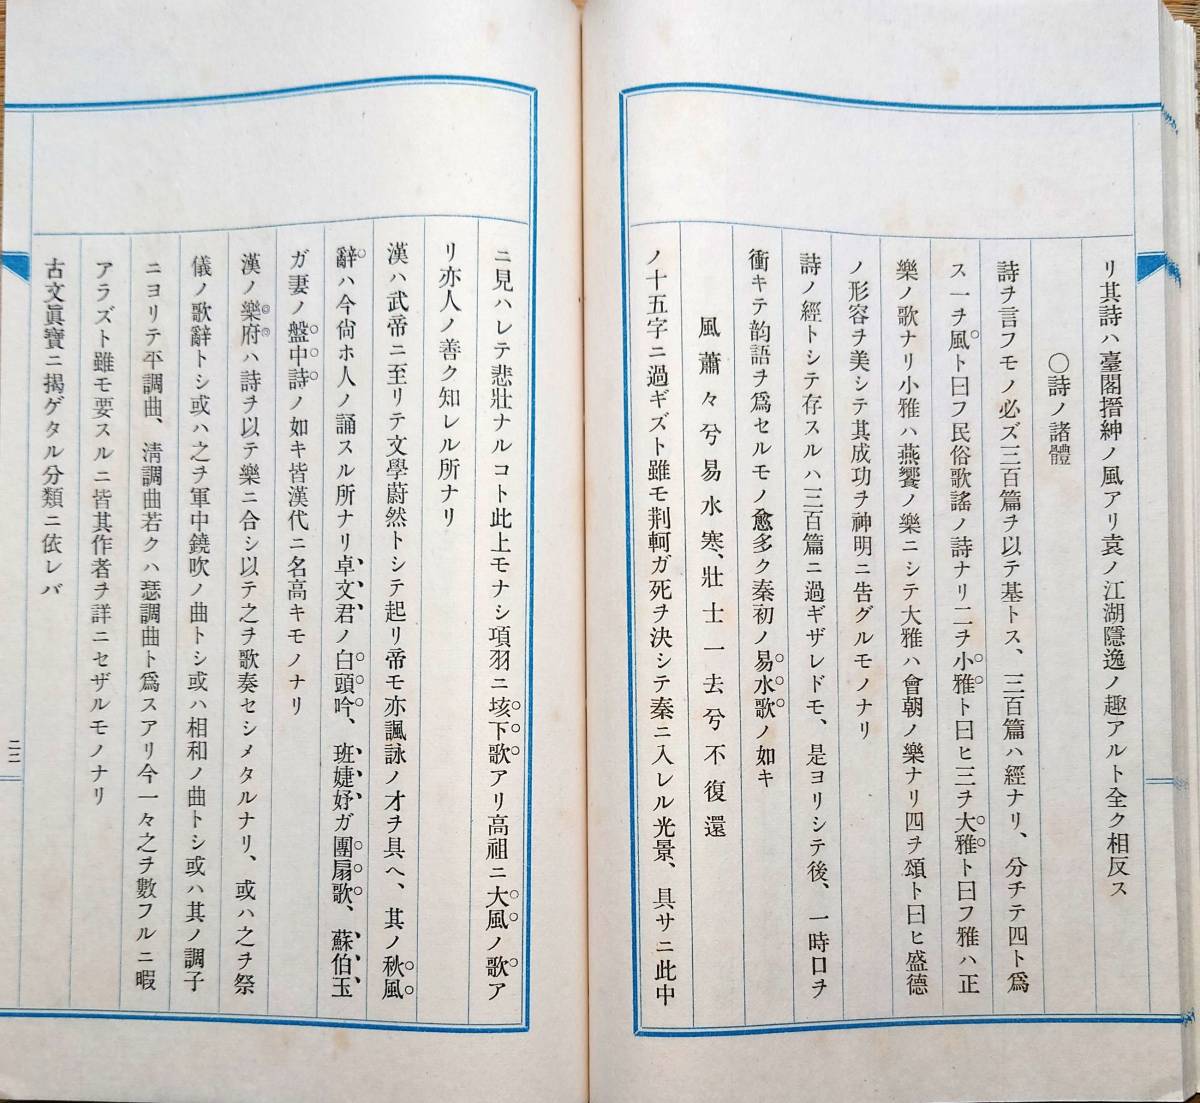 リ其詩ハ臺閣搢紳ノ風アリ袁ノ江湖隱逸ノ趣アルト全ク相反ス
〇詩ノ諸體
詩ヲ言フモノ必ズ三百篇ヲ以テ基トス、三百篇ハ經ナリ、分チテ四ト爲
ス一ヲ風ト曰フ民俗歌謠ノ詩ナリ二ヲ小雅ト曰ヒ三ヲ大雅ト曰フ雅ハ正
樂ノ歌ナリ小雅ハ燕饗ノ樂ニシテ大雅ハ會朝ノ樂ナリ四ヲ頌ト曰ヒ盛德
ノ形容ヲ美シテ其成功ヲ神明ニ告グルモノナリ
詩ノ經トシテ存スルハ三百篇ニ過ギザレドモ、是ヨリシテ後、一時口ヲ
衝キテ韵語ヲ爲セルモノ愈多ク秦初ノ易水歌ノ如キ
風蕭々兮易水寒、壯士一去兮不復還
ノ十五字ニ過ギズト雖モ荆軻ガ死ヲ決シテ秦ニ入レル光景、具サニ此中
ニ見ハレテ悲壯ナルコト此上モナシ項羽ニ垓下歌アリ高祖ニ大風ノ歌ア
リ亦人ノ善ク知レル所ナリ
漢ハ武帝ニ至リテ文學蔚然トシテ起リ帝モ亦諷詠ノ才ヲ具ヘ、其ノ秋風
辭ハ今尙ホ人ノ誦スル所ナリ卓文君ノ白頭吟、班婕妤ガ團扇歌、蘇伯玉
ガ妻ノ盤中詩ノ如キ皆漢代ニ名高キモノナリ
漢ノ樂府ハ詩ヲ以テ樂ニ合シ以テ之ヲ歌奏セシメタルナリ、或ハ之ヲ祭
儀ノ歌辭トシ或ハ之ヲ軍中鐃吹ノ曲トシ或ハ相和ノ曲トシ或ハ其ノ調子
ニヨリテ平調曲、淸調曲若クハ瑟調曲ト爲スアリ今一々之ヲ數フルニ暇
アラズト雖モ要スルニ皆其作者ヲ詳ニセザルモノナリ
古文眞寶ニ揭ゲタル分類ニ依レバ